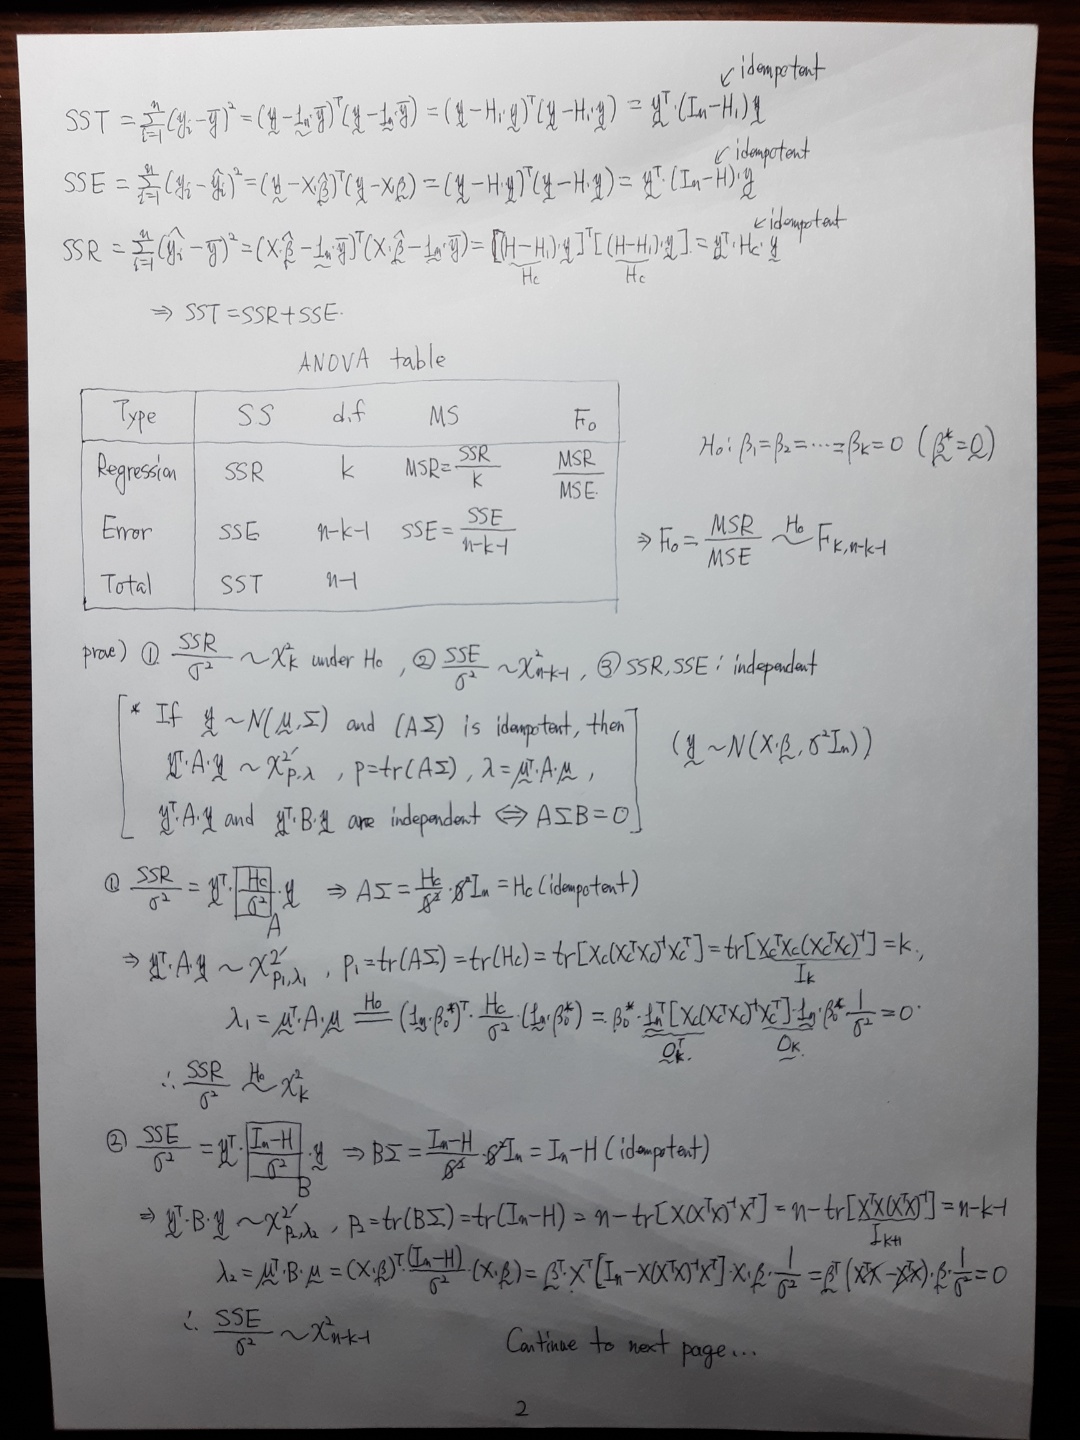 ↙ idempotent
SST = Σ_{i=1}^{n} (y_i − ȳ)² = (y − 1_n·ȳ)ᵀ(y − 1_n·ȳ) = (y − H₁·y)ᵀ(y − H₁·y) = yᵀ·(I_n − H₁)y
↙ idempotent
SSE = Σ_{i=1}^{n} (y_i − ŷ_i)² = (y − X·β̂)ᵀ(y − X·β̂) = (y − H·y)ᵀ(y − H·y) = yᵀ·(I_n − H)·y
↙ idempotent
SSR = Σ_{i=1}^{n} (ŷ_i − ȳ)² = (X·β̂ − 1_n·ȳ)ᵀ(X·β̂ − 1_n·ȳ) = [(H − H₁)·y]ᵀ[(H − H₁)·y] = yᵀ·H_c·y
H_c H_c
⇒ SST = SSR + SSE.
ANOVA table
Type SS d.f MS F₀
Regression SSR k MSR = SSR/k MSR/MSE
Error SSE n−k−1 SSE = SSE/(n−k−1)
Total SST n−1
H₀ : β₁ = β₂ = ⋯ = β_k = 0 (β* = 0)
⇒ F₀ = MSR/MSE ~^{H₀} F_{k,n−k−1}
prove) ① SSR/σ² ~ χ²_k under H₀ , ② SSE/σ² ~ χ²_{n−k−1} , ③ SSR, SSE : independent
[ * If y ~ N(μ, Σ) and (AΣ) is idempotent, then
yᵀ·A·y ~ χ²′_{p,λ} , p = tr(AΣ) , λ = μᵀ·A·μ ,
yᵀ·A·y and yᵀ·B·y are independent ⇔ AΣB = 0 ]
(y ~ N(X·β, σ²I_n))
① SSR/σ² = yᵀ·[H_c/σ²]·y ⇒ AΣ = H_c/σ² · σ²I_n = H_c (idempotent)
A
⇒ yᵀ·A·y ~ χ²′_{p₁,λ₁} , p₁ = tr(AΣ) = tr(H_c) = tr[X_c(X_cᵀX_c)⁻¹X_cᵀ] = tr[X_cᵀX_c(X_cᵀX_c)⁻¹] = k ,
I_k
λ₁ = μᵀ·A·μ =^{H₀} (1_n·β₀*)ᵀ · H_c/σ² · (1_n·β₀*) = β₀*·1_nᵀ[X_c(X_cᵀX_c)⁻¹X_cᵀ]·1_n·β₀*·1/σ² = 0
0_kᵀ. 0_k.
∴ SSR/σ² ~^{H₀} χ²_k
② SSE/σ² = yᵀ·[(I_n − H)/σ²]·y ⇒ BΣ = (I_n − H)/σ² · σ²I_n = I_n − H (idempotent)
B
⇒ yᵀ·B·y ~ χ²′_{p₂,λ₂} , p₂ = tr(BΣ) = tr(I_n − H) = n − tr[X(XᵀX)⁻¹Xᵀ] = n − tr[XᵀX(XᵀX)⁻¹] = n−k−1
I_{k+1}
λ₂ = μᵀ·B·μ = (X·β)ᵀ·(I_n − H)/σ²·(X·β) = βᵀ·Xᵀ[I_n − X(XᵀX)⁻¹Xᵀ]·X·β·1/σ² = βᵀ(XᵀX − XᵀX)·β·1/σ² = 0
∴ SSE/σ² ~ χ²_{n−k−1}
Continue to next page...
2